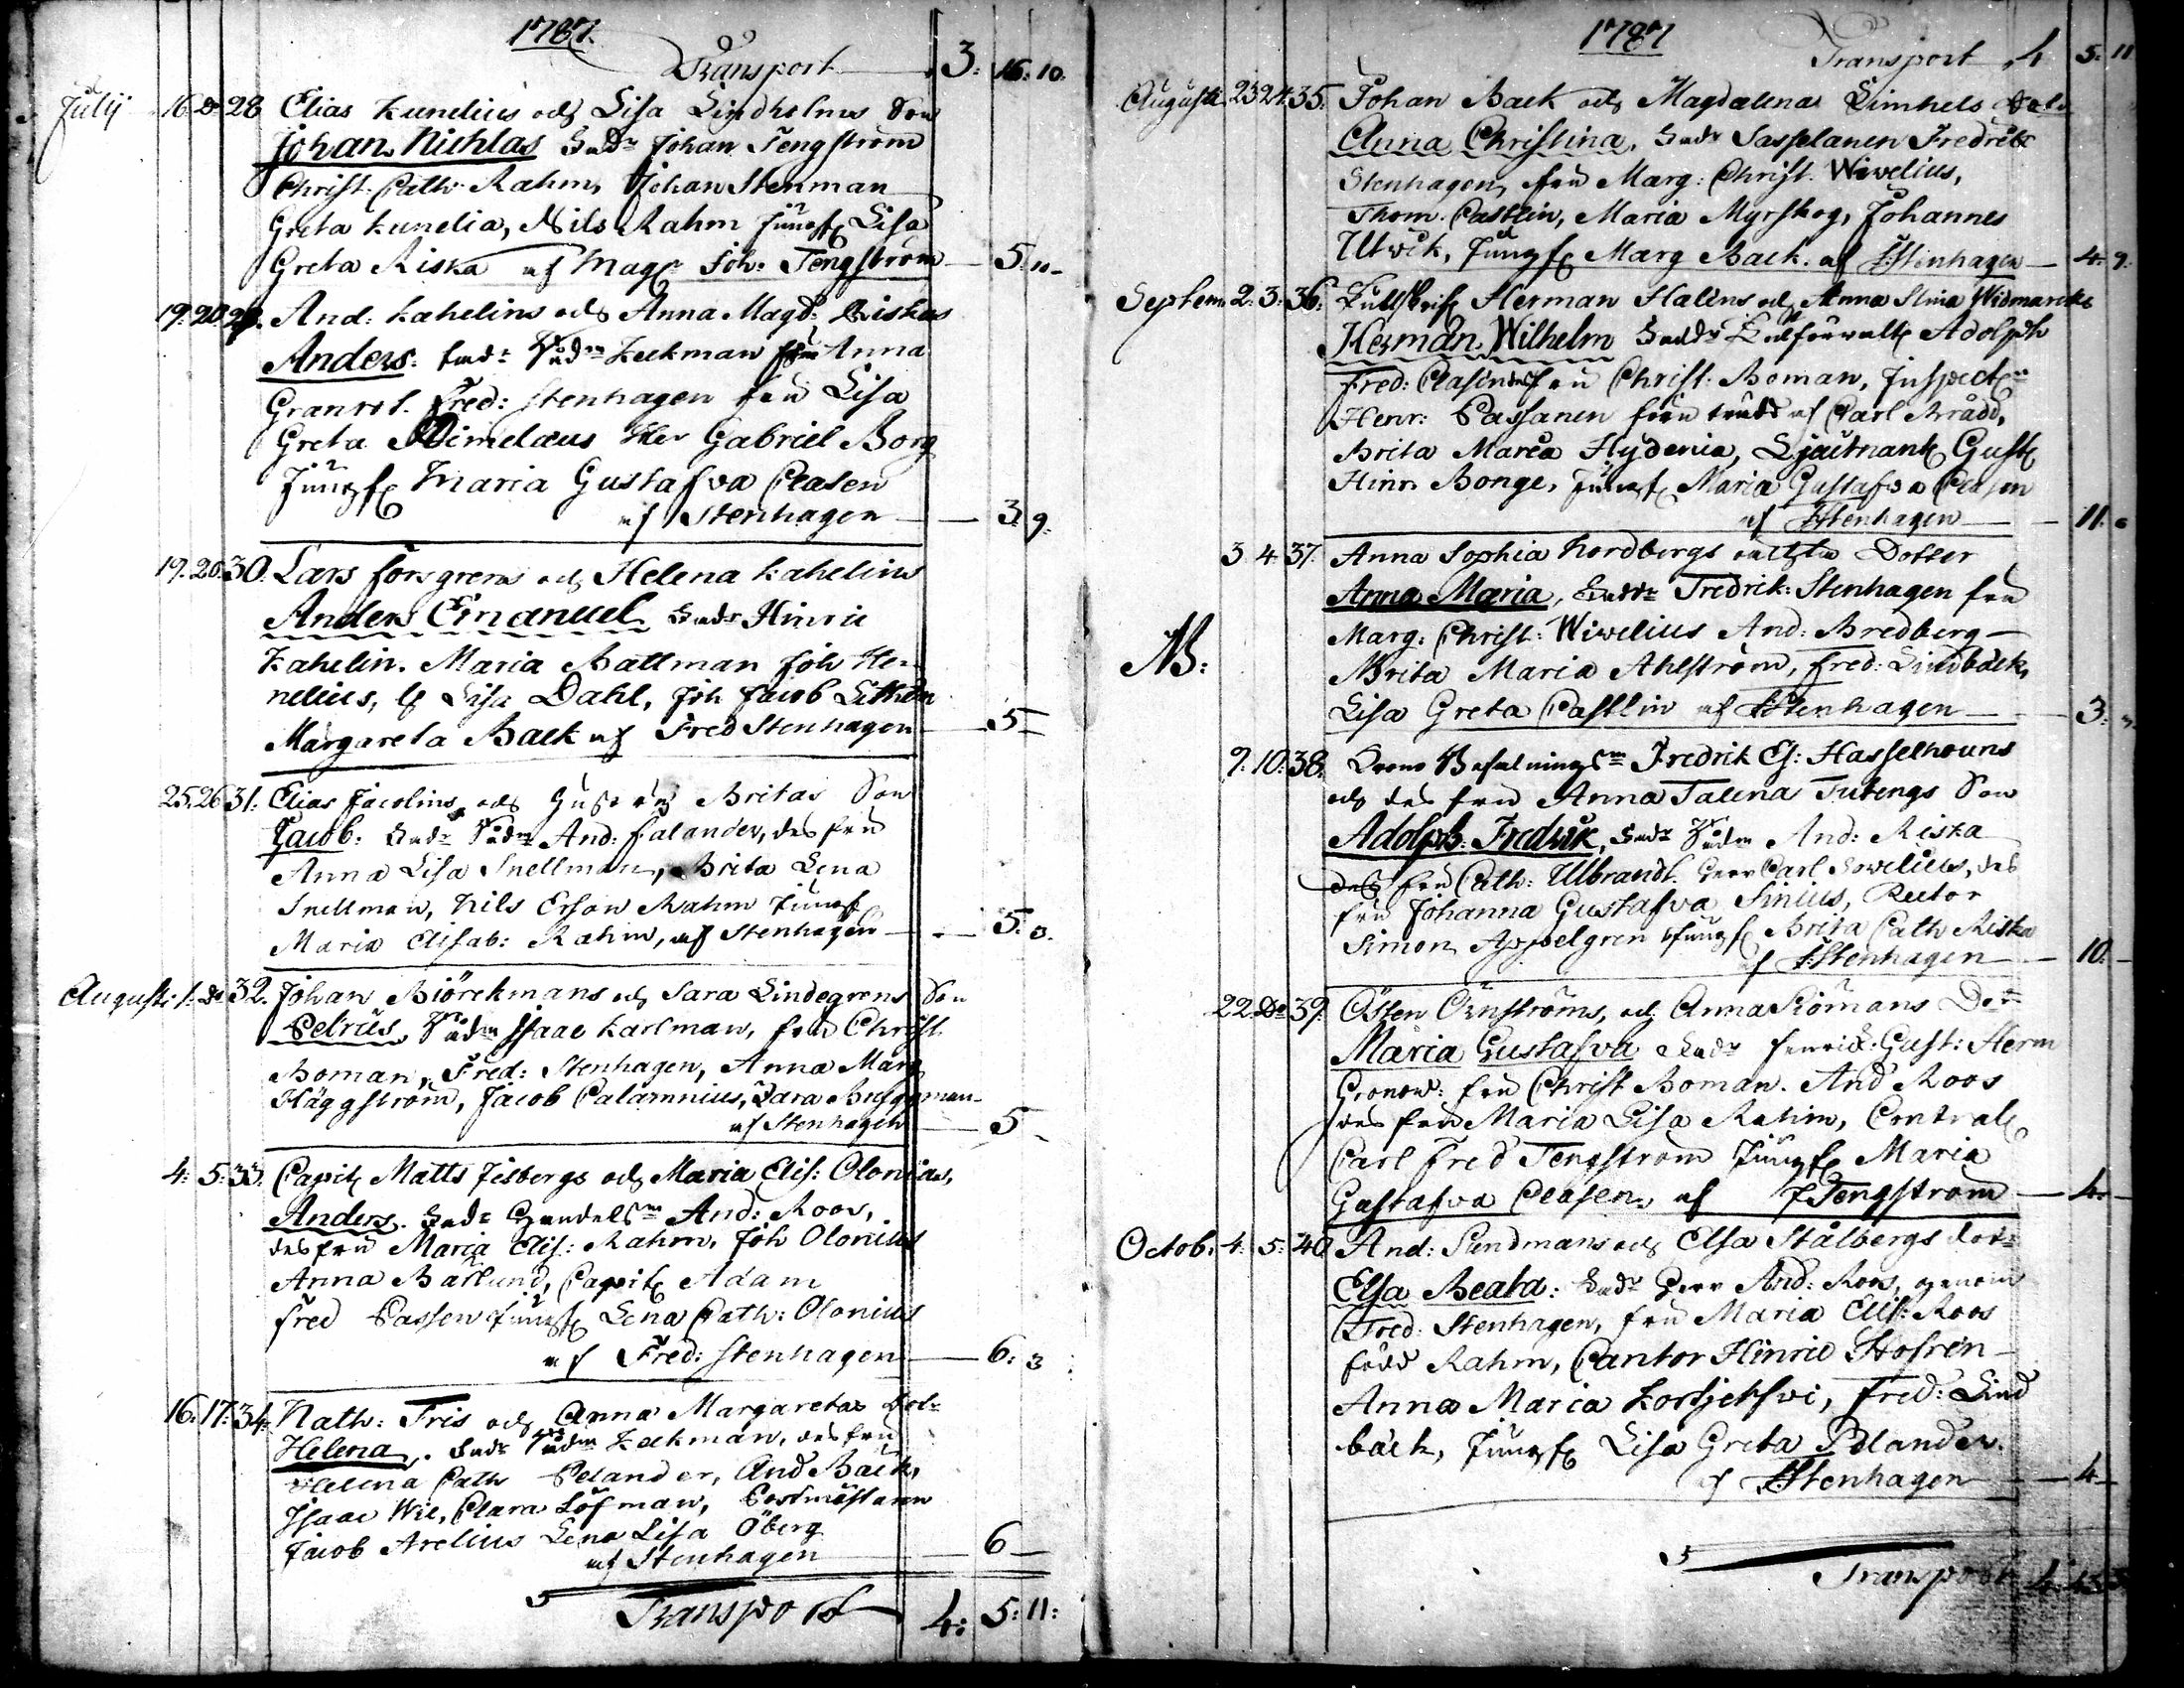 1787.
Transport 3: 16: 10.
Julii 16. Do 28 Elias Kunelius och Lisa Lindholms Son
Johan Nichlas Fadr Johan Tengström
Christ: Cath: Rahm, Johan Stenman
Greta Kunelia, Nils Rahm Jungf Lisa
Greta Riska af Mag: Joh: Tengström 5: 10
19: 20 29. And: Kahelins och Anna Magd: Riskas
Anders: Fadr Rådm Keckman fru Anna
Granrot. Fred: Stenhagen fru Lisa
Greta Herr Gabriel Borg
Jungf Maria Gustafva Clasen
af Stenhagen 3 9.
19. 20. 30. Lars Forsgrens och Helena Kahelins
Anders Emanuel Fadr Hinric
Kahelin. Maria Battman Joh Her
nelius, Lisa Dahl, Joh Jacob Lithén
Margareta Back af Fred Stenhagen 5
25. 26 31: Elias Jacolins och Hustrus Britas Son
Jacob: Fadr Rådm And: Falander, des fru
Anna Lisa Snellman, Brita Lena
Snellman, Nils Erson Rahm Jungf
Maria Elisab: Rahm, af Stenhagen 5: 3.
Augusti 1: Do 32. Johan Biörckmans och Sara Lindegrens Son
Petrus, Rådm Isaac Karlman, fru Christ.
Boman, Fred: Stenhagen, Anna Marg
Häggström, Jacob Calamnius, Sara Bruggman
af Stenhagen 5
4: 5: 33. Capit Matts Jisbergs och Maria Elis: Olonias,
Anders. Fadr Handelsm And: Roos,
des fru Maria Elis: Rahm, Joh Olonius
Anna Barlund, Capit Adam
Fred Cassen Jungf Lena Cath: Olonius
af Fred: Stenhagen 6: 3
16: 17: 34: Nath: Fris och Anna Margaretas dot:
Helena. Fadr Rådm Keckman, des fru
Helena Cath Pelander, And Back,
Isaac Wie, Clara Löfman, Postmästaren
Jacob Arelius Lena Lisa Öberg
af Stenhagen 6
Transport 4: 5: 11:
1787
Transport 4 5: 11
Augusti 23 24. 35. Johan Back och Magdalena Limhels dot
Anna Christina, Fadr Fredric
Stenhagen, fru Marg: Christ. Wivelius,
Thom. Castlin, Maria Myrskog, Johannes
Utwik, Jungf Marg Back. af F: Stenhagen 4: 9.
Septem 2: 3: 36: Herman Haléns och Anna Stina Widmarcks
Herman Wilhelm Fadr Adolph
Fred: Clasén fru Christ: Boman, Inspect
Henr: Passanen af Carl Brådd,
Brita Maria Hydenia, Gust
Hinr Bonge, Jungf Maria Gustafva Clasen
af F Stenhagen 11: 6
3 4 37. Anna Sophia Nordbergs Dotter
Anna Maria, Fadr Fredrik: Stenhagen fru
NB: Marg: Christ: Wivelius And: Bredberg
Brita Maria Ahlström, Fred: Lindbäck,
Lisa Greta Castlin af F Stenhagen 3:
9: 10: 38. Crono Befalningsm Fredrik Es: Hasselhouns
och des fru Anna Talena Tubengs Son
Adolph: Fredric, Fadr Rådm And: Riska
des fru Cath: Ulbrandt. Herr Carl Sovelius, des
fru Johanna Gustafva Sinius, Rector
Simon Appelgren Jungf Brita Cath Riska
af F: Stenhagen 10:
22. Do 39. Östen Örnströms, och Anna Siömans Dot
Maria Gustafva Fadr Gust: Herm
Gronow: fru Christ Boman. And Roos
des fru Maria Lisa Rahm,
Carl Fred Tengström Jungf Maria
Gustafva Clasen, af J Tengström 4.
Octob. 4: 5: 40 And: Sundmans och Elsa Stålbergs dot:
Elsa Beata: Fadr Herr And: Roos, genom
Fred: Stenhagen, fru Maria Elis: Roos
född Rahm, Cantor Hinric Hofrén
Anna Maria Fred: Lind
bäck, Jungf Lisa Greta Polander.
af F Stenhagen 4
Transport 4: